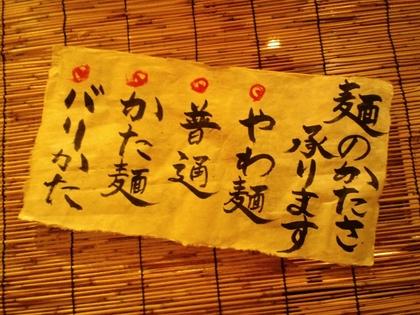 麺のかたさ
承ります
やわ麺
普通
かた麺
バリかた